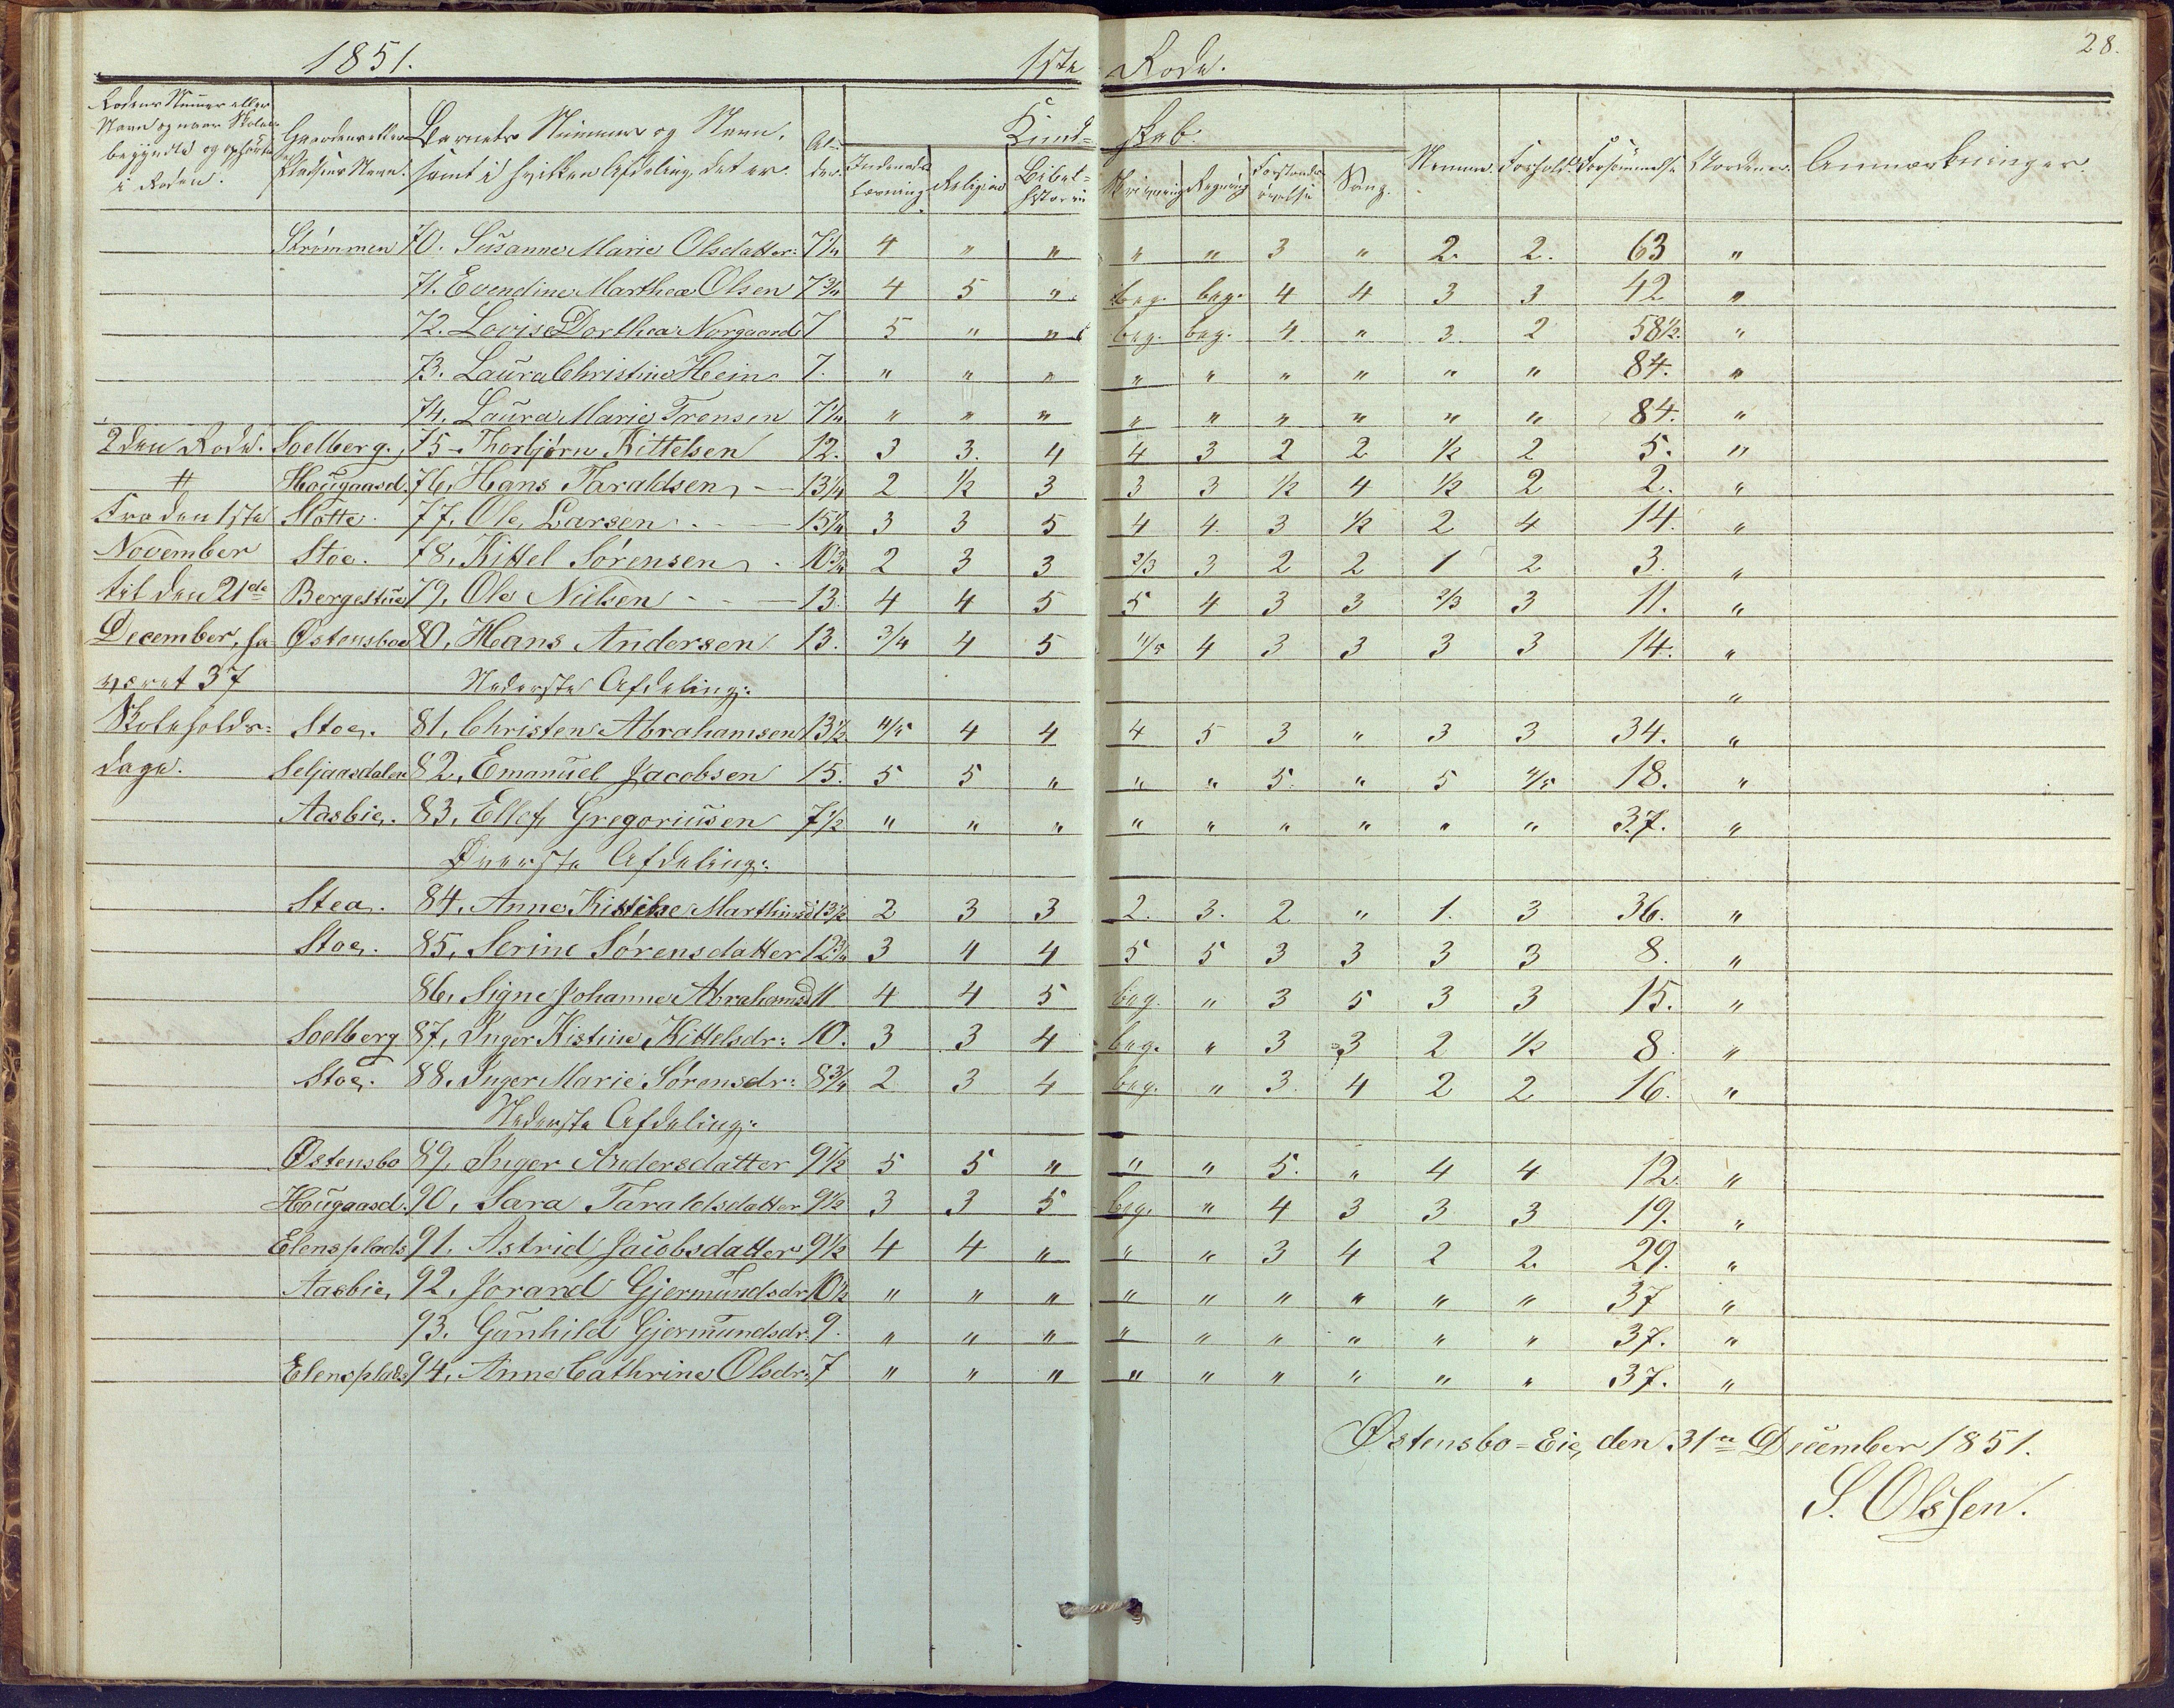 1851. 1ste Rode. 28.
Rodens Nummer eller Navn og naar Skolen begyndte og ophørte i Roden. Gaardens eller Pladsens Navn. Barnets Nummer og Navn, samt i hvilken Afdeling det er. Al-der. Kund=skab. Nemme. Forhold. Forsømmelse Anmærkninger.
Indenads læsning. Religion Bibel=historie Skrivning Regning Forstands øvelse Sang.
Strømmen 70. Susanne Marie Olsdatter: 7 1/4 4 " " " " 3 " 2. 2. 63 "
71. Evendine Marthea Olsen 7 3/4 4 5 " beg. beg. 4 4 3 3 42 "
72. Lovise Dorthea Norgaard 7 5 " " beg. beg. 4 " 3. 2 58 1/2. "
73. Laura Christine Hein 7. " " " " " " " " " 84. "
74. Laura Marie Trensen 7 1/4 " " " " " " " " " 84. "
2den Rode. Soelberg. 75 - Thorbjørn Kittelsen 12. 3 3. 4 4 3 2 2 1/2 2 5. "
# Hougaasd. 76, Hans Taraldsen, - 13 1/4 2 1/2 3 3 3 1/2 4 1/2 2 2. "
Fra den 1ste Slotte 77, Ole Larsen. - 15 1/4 3 3 5 4 4. 3 1/2 2 4 14. "
November Stoe. 78, Kittel Sørensen 10 3/4 2 3 3 2/3 3 2 2 1 2 3. "
til den 21de Bergestue 79, Ole Nielsen - - 13. 4 4 5 5 4 3 3 2/3 3 11. "
December, ha Østensboe 80, Hans Andersen 13. 3/4 4 5 4/5 4 3 3 3 3 14. "
været 37 Nederste Afdeling: "
Skoleholds= Stoe. 81, Christen Abrahamsen 13 1/2 4/5 4 4 4 5 3 " 3 3 34. "
dage. Seljaasdalen 82, Emanuel Jacobsen 15. 5 5 " " " 5. " 5 4/5 18. "
Aasbie. 83, Ellef Gregoriusen 7 1/2 " " " " " " " " " 37. "
Øverste Afdeling:
Stea. 84, Anne Kistine Marthinsd 13 1/2 2 3 3 2. 3. 2 " 1. 3 36. "
Stoe. 85, Serine Sørensdatter 12 3/4 3 4 4 5 5 3 3 3 3 8. "
86, Signe Johanne Abrahamsd 11 4 4 5 beg. " 3 5 3 3 15. "
Soelberg 87, Inger Kistine Kittelsdr: 10. 3 3 4 beg. " 3 3 2 1/2 8. "
Stoe. 88. Inger Marie Sørensdr: 8 3/4 2 3 4 beg. " 3. 4 2 2 16. "
Nederste Afdeling:
Østensbo 89, Inger Andersdatter 9 1/2 5 5 " " " 5. " 4 4 12. "
Hougaasd. 90, Sara Taraldsdatter 9 1/2 3 3 5 beg. " 4 3 3 3 19. "
Elensplads 91. Astrid Jacobsdatter 9 1/2 4 4 " " " 3 4 2 2. 29. "
Aasbie, 92, Jorand Gjermundsdr 10 1/2 " " " " " " " " " 37 "
93. Gunhild Gjermundsdr: 9. " " " " " " " " " 37. "
Elensplads 94, Anne Cathrine Olsdr: 7 " " " " " " " " " 37. "
Østensbo=Eie, den 31te December 1851.
S. Olssen.